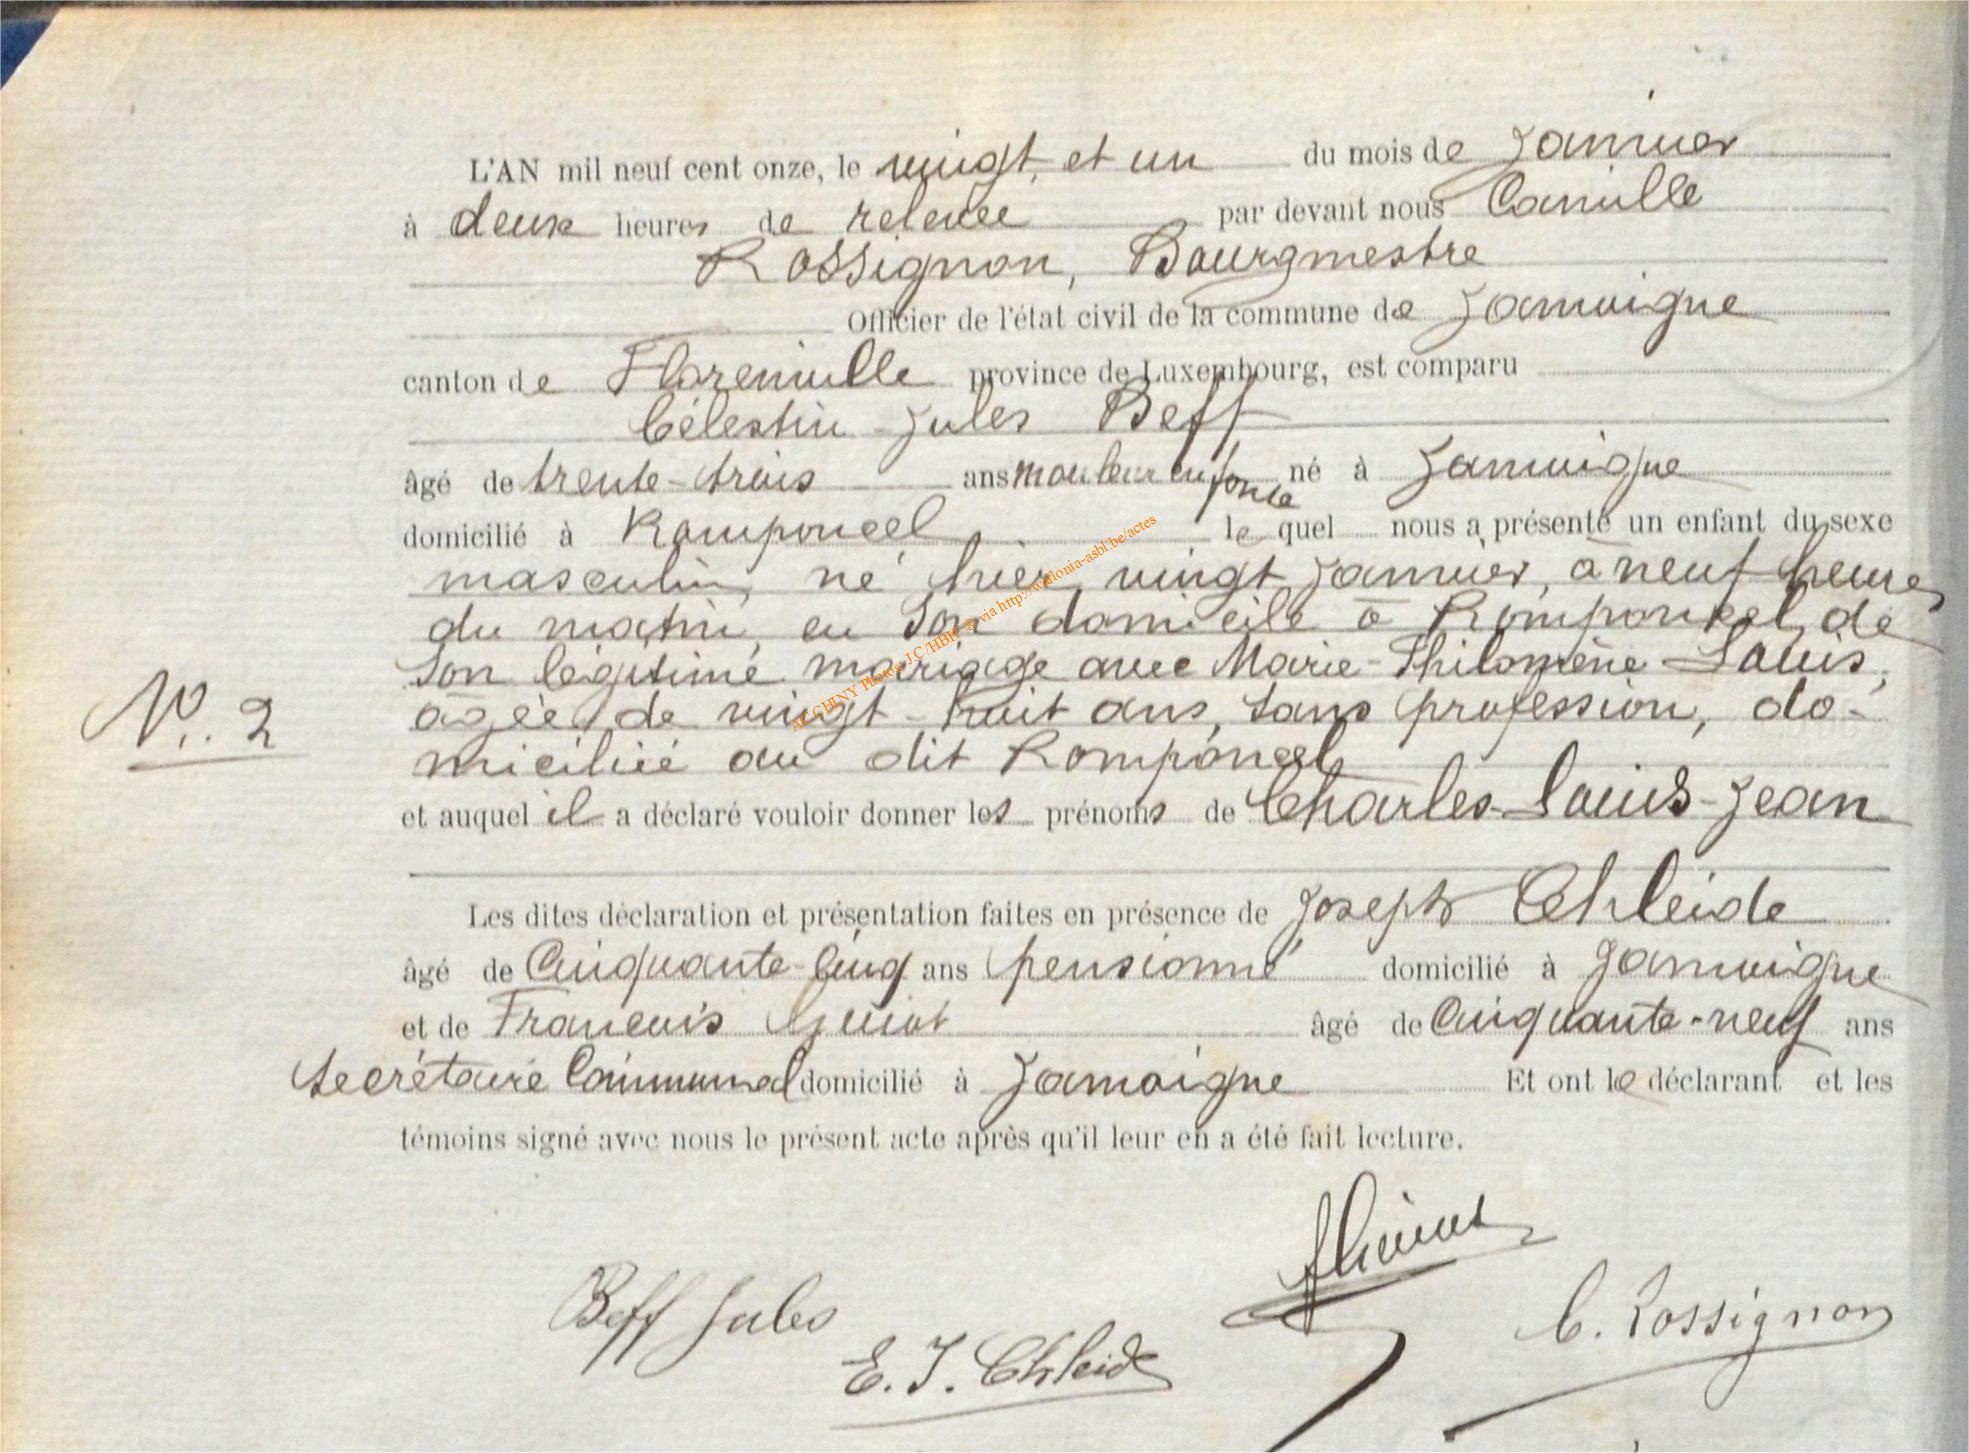 L'AN mil neuf cent onze, le vingt et un du mois de Janvier
à deux heures de relevée par devant nous Camille
Rossignon, Bourgmestre
Officier de l'état civil de la commune de Jamoigne
canton de Florenville province de Luxembourg, est comparu
Célestin Jules Beff
âgé de trente-trois ans mouleur en fonte né à Jamoigne
domicilié à Romponcel lequel nous a présenté un enfant du sexe
masculin, né hier, vingt Janvier, à neuf heures
du matin, en son domicile à Romponcel, de
son légitime mariage avec Marie-Philomène Louis,
âgée de vingt-huit ans, sans profession, do-
N°. 2
miciliée au dit Romponcel
et auquel il a déclaré vouloir donner les prénoms de Charles-Louis-Jean
Les dites déclaration et présentation faites en présence de Joseph Chleide
âgé de Cinquante-cinq ans pensionné domicilié à Jamoigne
et de François Guiot âgé de Cinquante-neuf ans
Secrétaire Communal domicilié à Jamoigne Et ont le déclarant et les
témoins signé avec nous le présent acte après qu'il leur en a été fait lecture.
Beff Jules
E. J. Chleide
C. Rossignon
AC CHINY Photos JC/HBH © via http://wallonia-asbl.be/actes